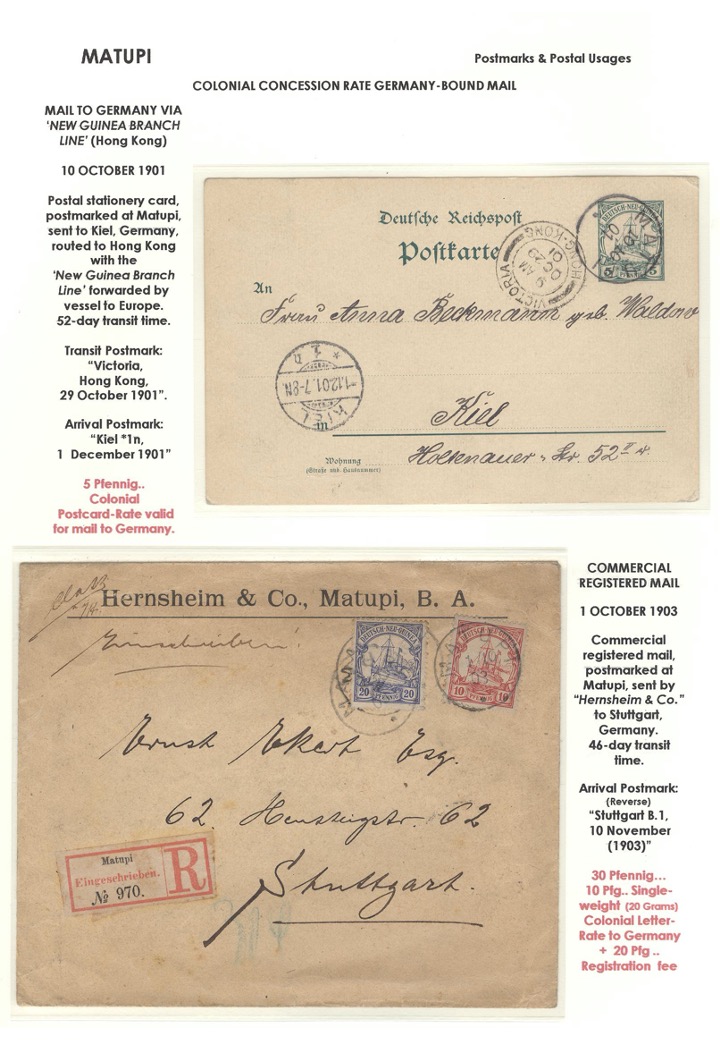 MATUPI
Postmarks & Postal Usages
COLONIAL CONCESSION RATE GERMANY-BOUND MAIL
MAIL TO GERMANY VIA
‘NEW GUINEA BRANCH
LINE’ (Hong Kong)
10 OCTOBER 1901
Postal stationery card,
postmarked at Matupi,
sent to Kiel, Germany,
routed to Hong Kong
with the
‘New Guinea Branch
Line’ forwarded by
vessel to Europe.
52-day transit time.
Transit Postmark:
“Victoria,
Hong Kong,
29 October 1901”.
Arrival Postmark:
“Kiel *1n,
1 December 1901”
5 Pfennig..
Colonial
Postcard-Rate valid
for mail to Germany.
Deutsche Reichspost
Postkarte
DEUTSCH-NEU-GUINEA
5 5
VICTORIA
HONG-KONG
9 AM
OC 29
01
An
Frau Anna Beckmann geb. Waldno
* 1 n
1.12.01.7-8N.
KIEL
Kiel
Holtenauer-Str. 52 II r.
Wohnung
(Straße und Hausnummer)
Hernsheim & Co., Matupi, B. A.
Einschreiben!
DEUTSCH-NEU-GUINEA
20 20
PFENNIG
DEUTSCH-NEU-GUINEA
10 10
PFENNIG
Ernst Ekert Esq.
62. Hensteigstr. 62
Stuttgart.
Matupi
Eingeschrieben.
№ 970.
R
COMMERCIAL
REGISTERED MAIL
1 OCTOBER 1903
Commercial
registered mail,
postmarked at
Matupi, sent by
“Hernsheim & Co.”
to Stuttgart,
Germany.
46-day transit
time.
Arrival Postmark:
(Reverse)
“Stuttgart B.1,
10 November
(1903)”
30 Pfennig...
10 Pfg.. Single-
weight (20 Grams)
Colonial Letter-
Rate to Germany
+ 20 Pfg ..
Registration fee